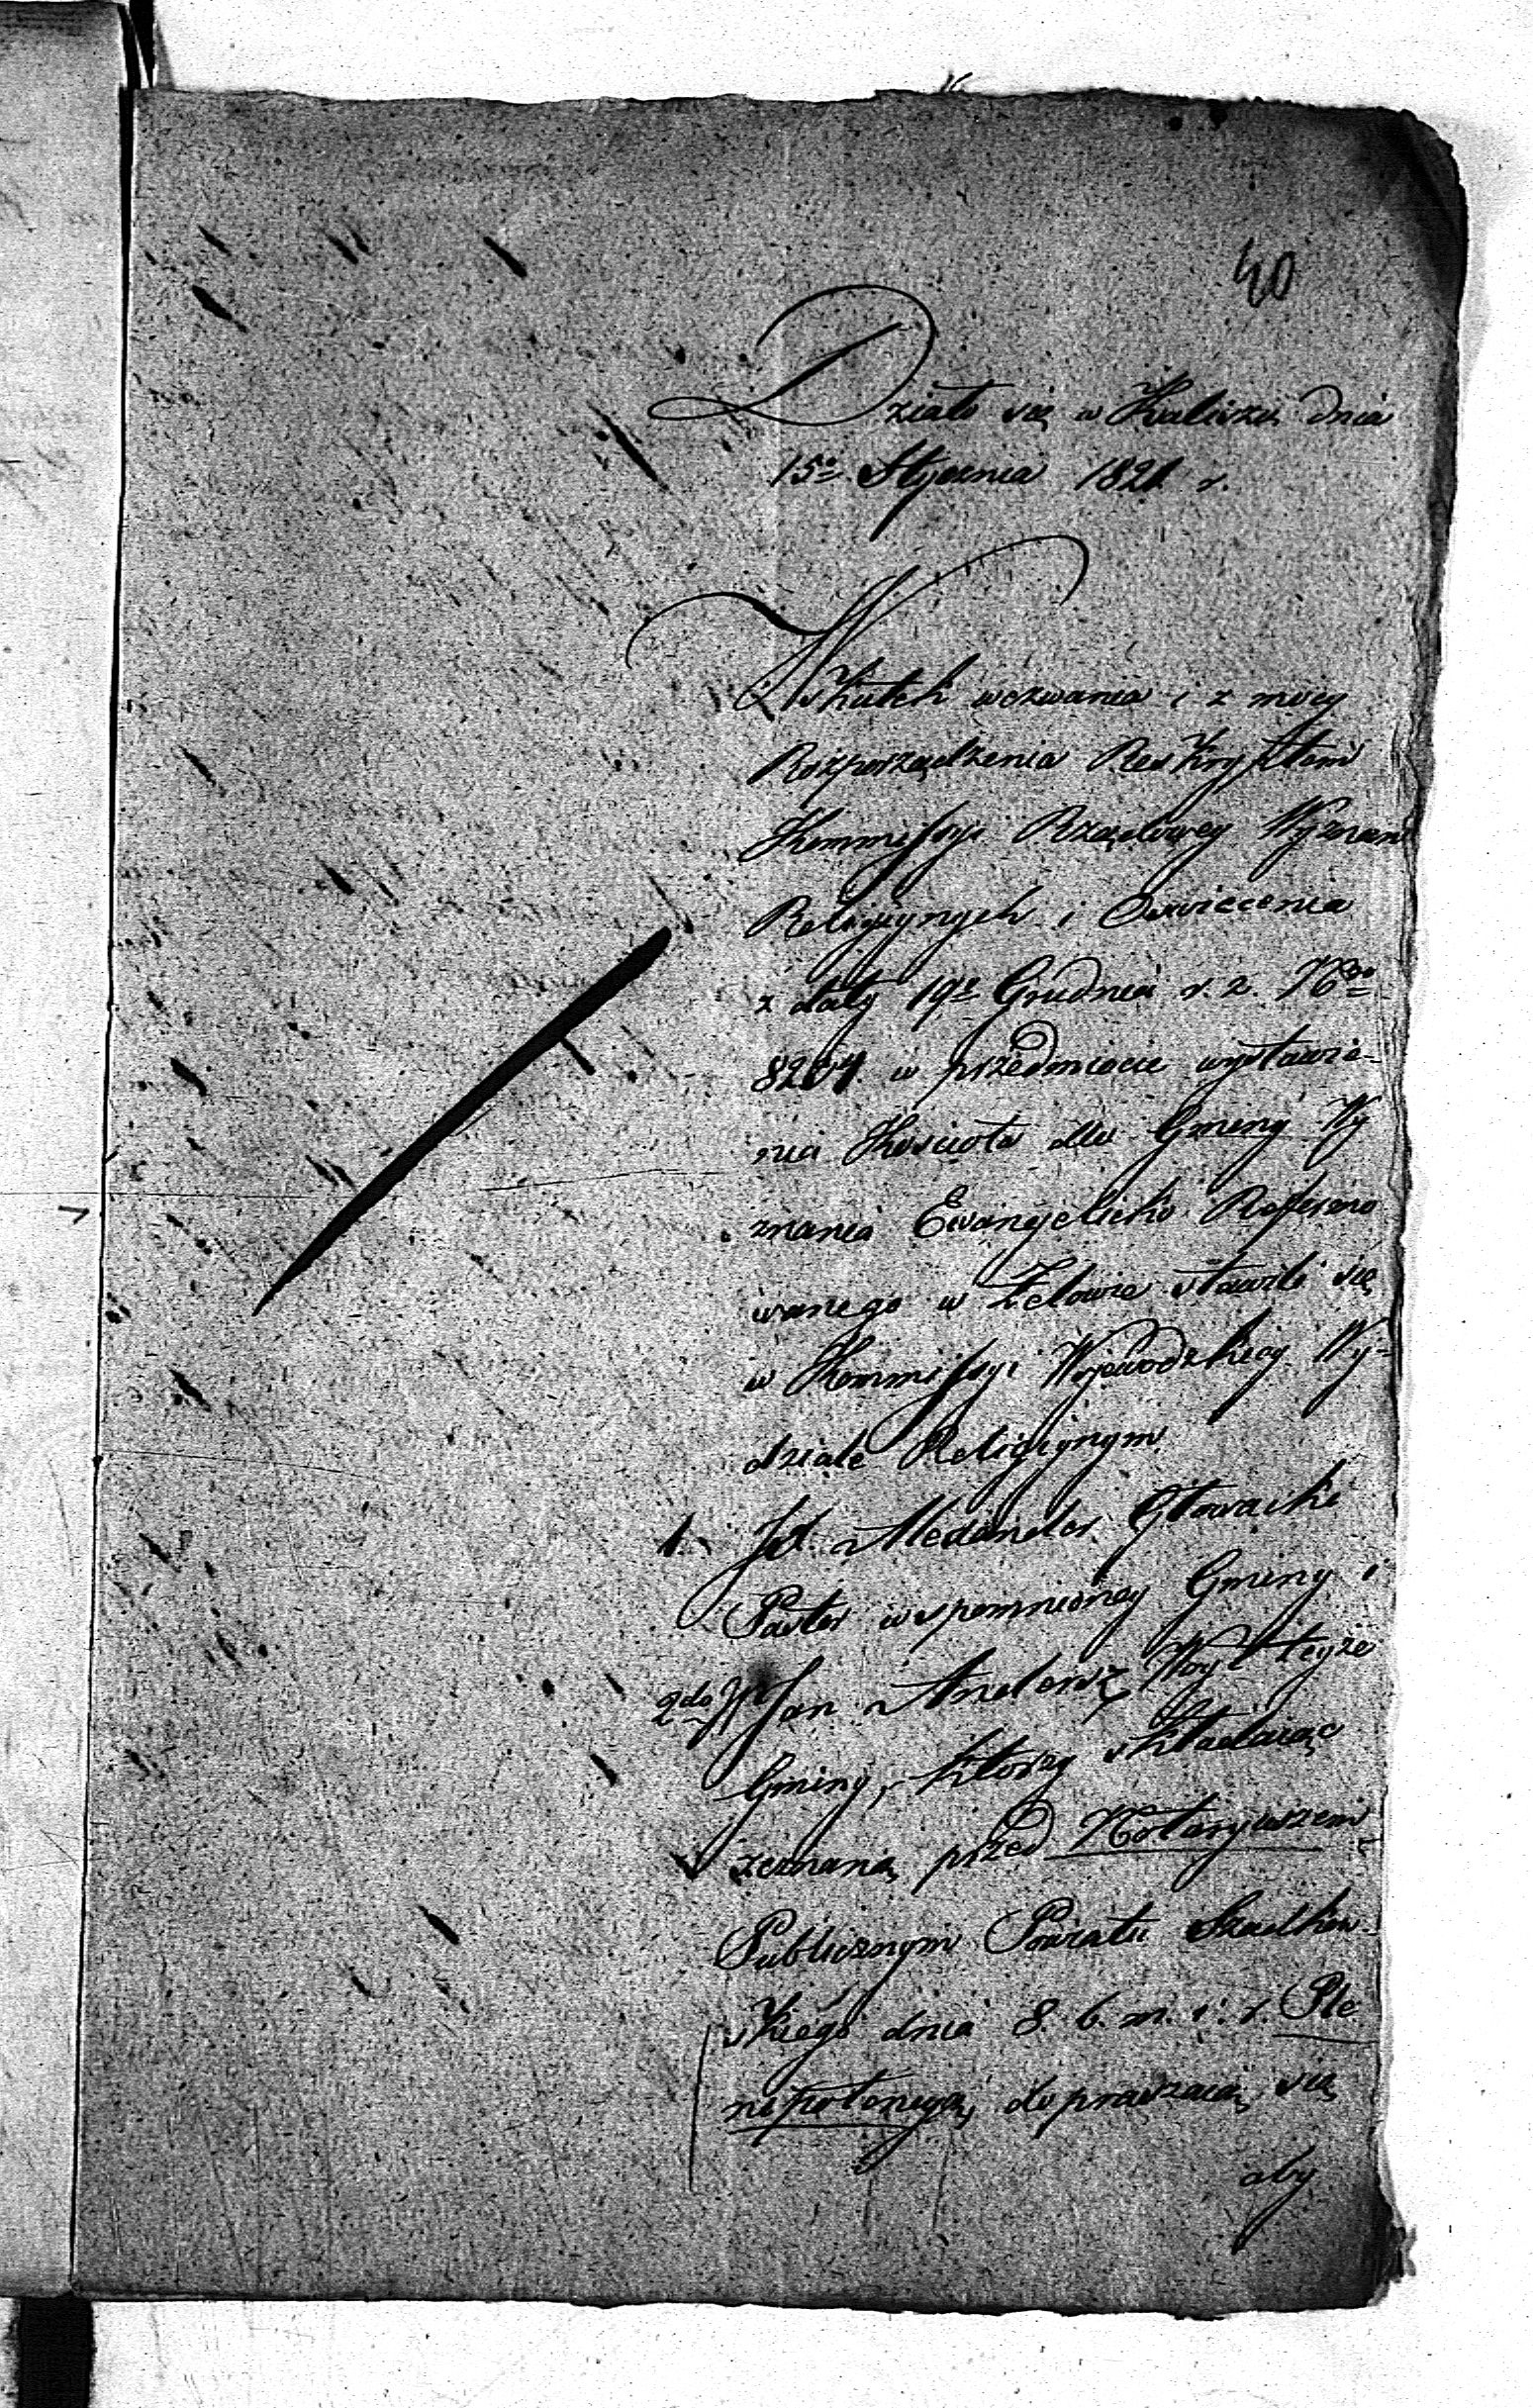 40
Działo się w Kaliszu dnia
15º Stycznia 1821 r.
W skutek wezwania i z mocy
Rozporządzenia Reskryptem
Kommissyi Rządowey Wyznań
Religiynych i Oswiecenia
z daty 19º Grudnia r. z. Nro
8204 w przedmiocie wystawie-
nia Koscioła dla Gminy Wy
znania Ewangelicko Reformo
wanego w Zelowie stawili się
w Kommissyi Wojewodzkiey Wy-
dziale Religiynym
1. JX. Alexander Głowacki
Pastor wspomnioney Gminy i
2do Jan Andersz Woyt teyże
Gminy, ktorzy składaiąc
zeznaną przed Notaryuszem
Publicznym Powiatu Szadkow
skiego dnia 8. b. m. i. r. Ple
nipotencyą, dopraszaią się
aby